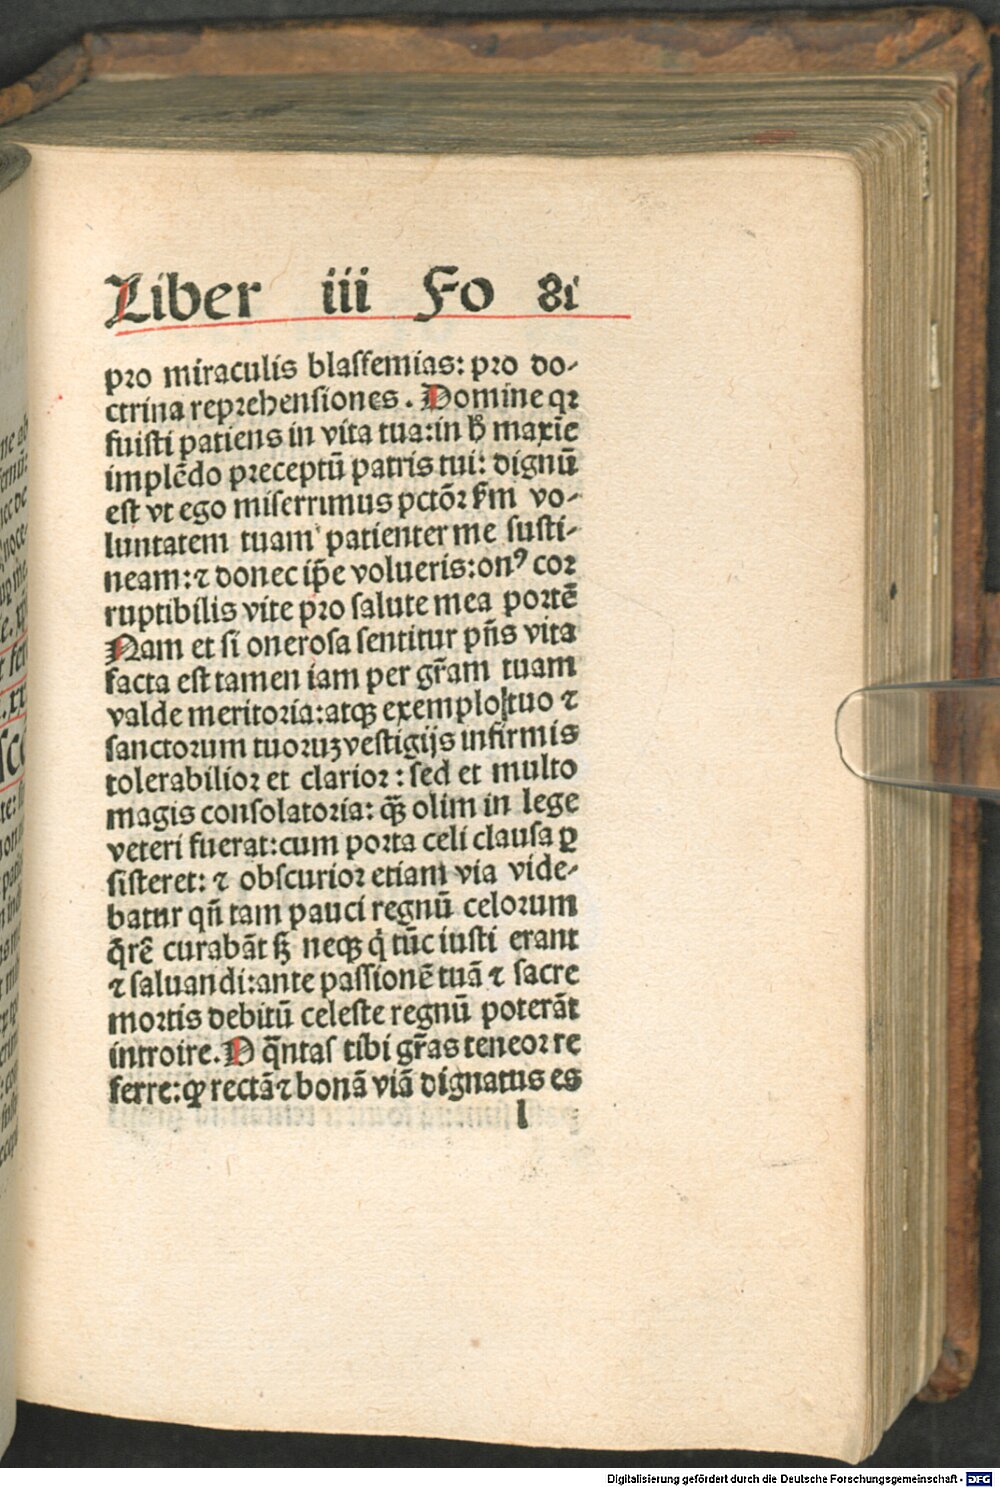 Liber iii Fo 81
pro miraculis blasfemias: pro do-
ctrina reprehensiones. Domine qꝛ
fuisti patiens in vita tua:in hͦ maxīe
implēdo preceptū patris tui: dignū
est vt ego miserrimus pctōꝛ ẜm vo-
luntatem tuam patienter me susti-
neam:⁊ donec ip̄e volueris:onꝰ coꝛ
ruptibilis vite pro salute mea portē
Nam et si onerosa sentitur pn̄s vita
facta est tamen iam per gr̄am tuam
valde meritoria:atqꝫ exemplo tuo ⁊
sanctorum tuoruꝫ vestigijs infirmis
tolerabilior et clarior: sed et multo
magis consolatoria: qꝫ̄ olim in lege
veteri fuerat:cum porta celi clausa ꝑ
sisteret: ⁊ obscurior etiam via vide-
batur qn̄ tam pauci regnū celorum
q̄rē curabāt sꝫ neqꝫ q̇ tūc iusti erant
⁊ saluandi:ante passionē tuā ⁊ sacre
mortis debitū celeste regnū poterāt
introire. O q̄ntas tibi gr̄as teneor re
ferre:ꝙ rectā ⁊ bonā viā dignatus es
l
Digitalisierung gefördert durch die Deutsche Forschungsgemeinschaft - DFG